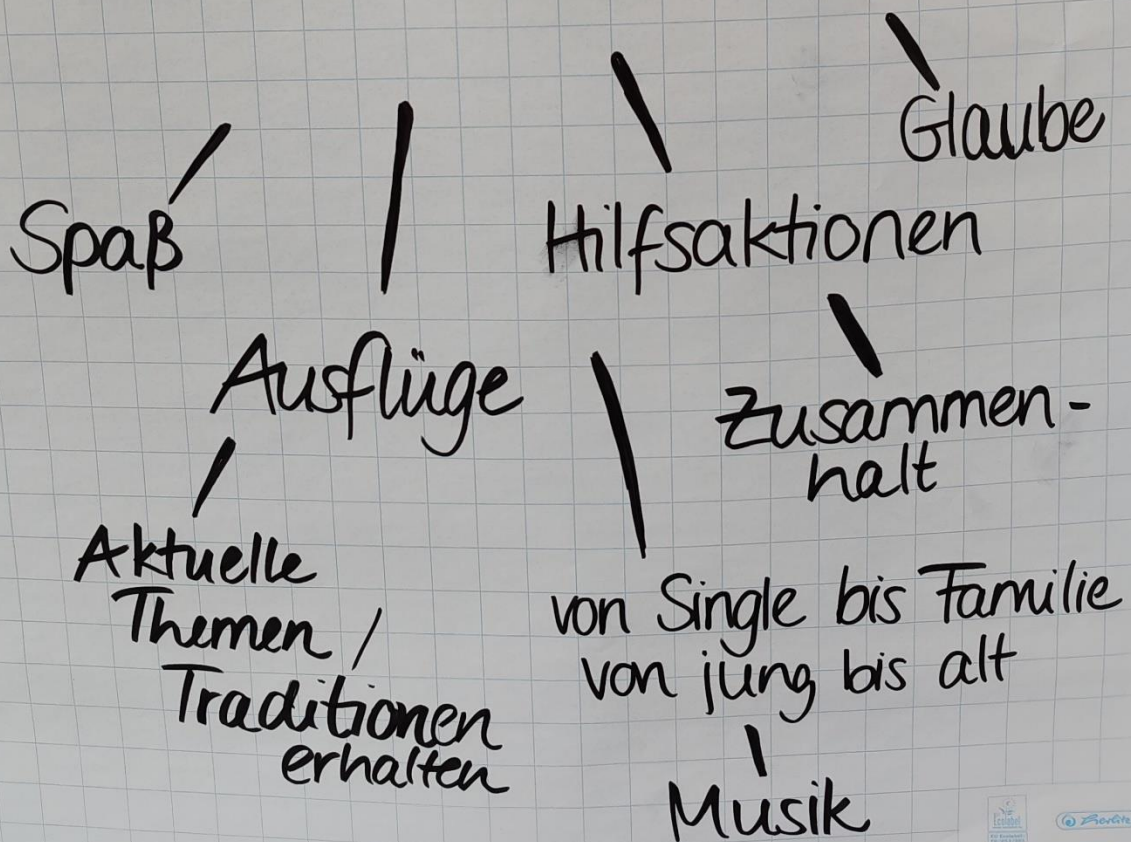 Glaube
Spaß
Hilfsaktionen
Ausflüge
Zusammen-
halt
Aktuelle
Themen /
Traditionen
erhalten
von Single bis Familie
von jung bis alt
Musik